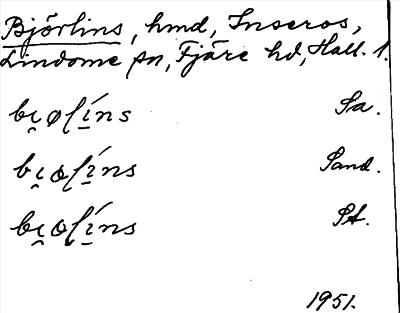 Björlins, hmd, Inseros,
Lindome sn, Fjäre hd, Hall. 1.
bi̯ølíns Sa.
bi̯ɵlíns Sand.
bi̯ɵlíns St.
1951.